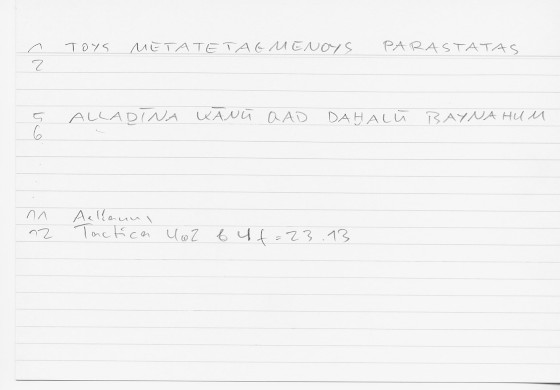 1 TOYS METATETAGMENOYS PARASTATAS
2
5 ALLAḎĪNA KĀNŪ QAD DAḪALŪ BAYNAHUM
6
11 Aelianus,
12 Tactica 402 b 4f = 23.13